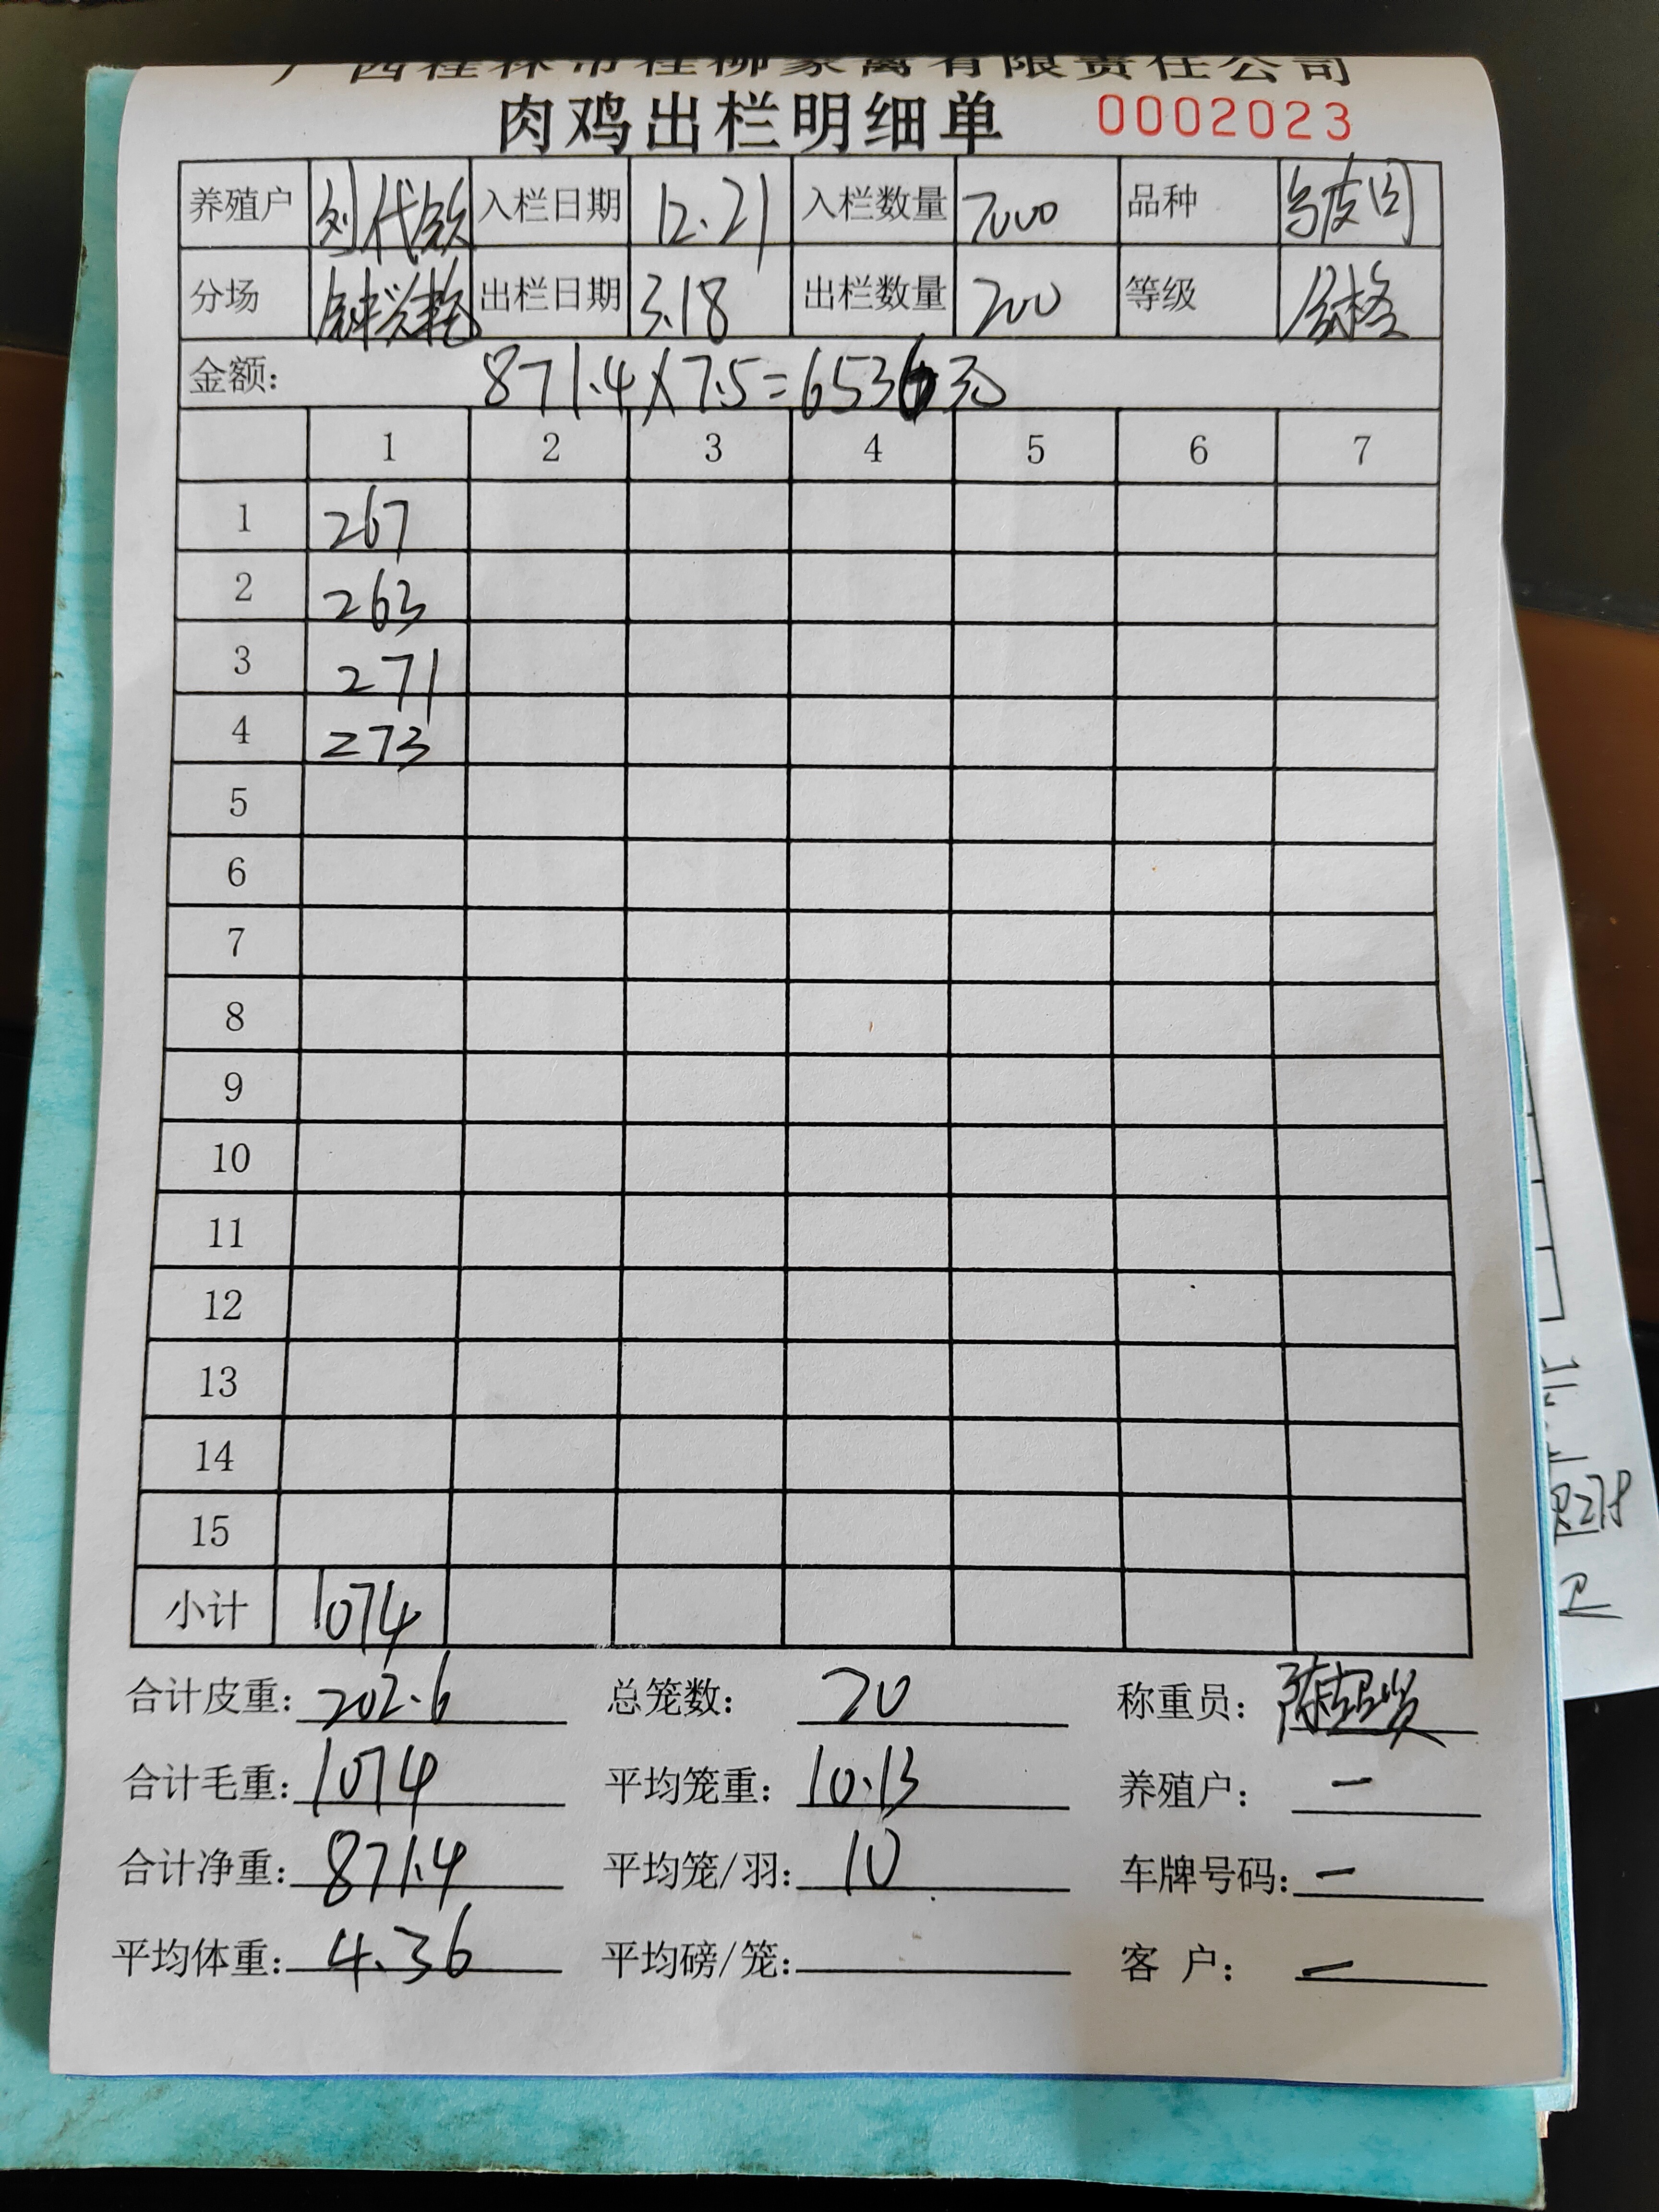 广西桂林市桂柳家禽有限责任公司
肉鸡出栏明细单 0002023
养殖户 刘代钦 入栏日期 12.21 入栏数量 7000 品种
分场 出栏日期 3.18 出栏数量 200 等级 合格
金额: 871.4×7.5=6536元
1 2 3 4 5 6 7
1 267
2 263
3 271
4 273
5
6
7
8
9
10
11
12
13
14
15
小计 1074
合计皮重: 202.6 总笼数: 20 称重员:
合计毛重: 1074 平均笼重: 10.13 养殖户: 一
合计净重: 871.4 平均笼/羽: 10 车牌号码: 一
平均体重: 4.36 平均磅/笼: 客 户: 一